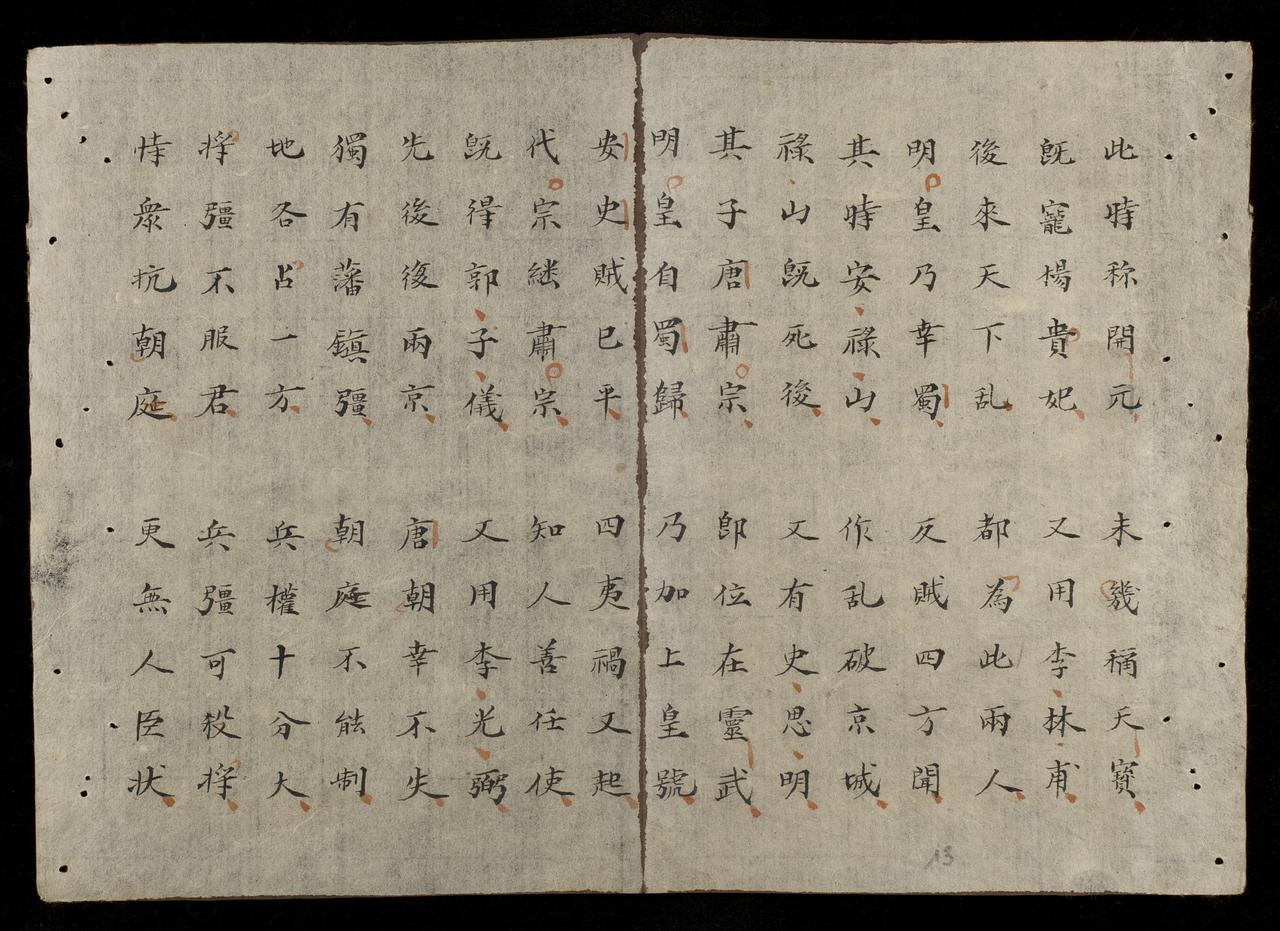 此時称開元
未幾稱天寳
既寵楊貴妃
又用李林甫
後來天下乱
都為此兩人
明皇乃幸蜀
反賊四方聞
其時安祿山
作乱破京城
祿山既死後
又有史思明
其子唐肅宗
即位在靈武
明皇自蜀歸
乃加上皇號
安史賊已平
四夷禍又起
代宗継肅宗
知人善任使
既得郭子儀
又用李光弼
先後復兩京
唐朝幸不失
獨有藩鎮彊
朝庭不能制
地各占一方
兵權十分大
将彊不服君
兵彊可殺将
恃衆抗朝庭
更無人臣状
13